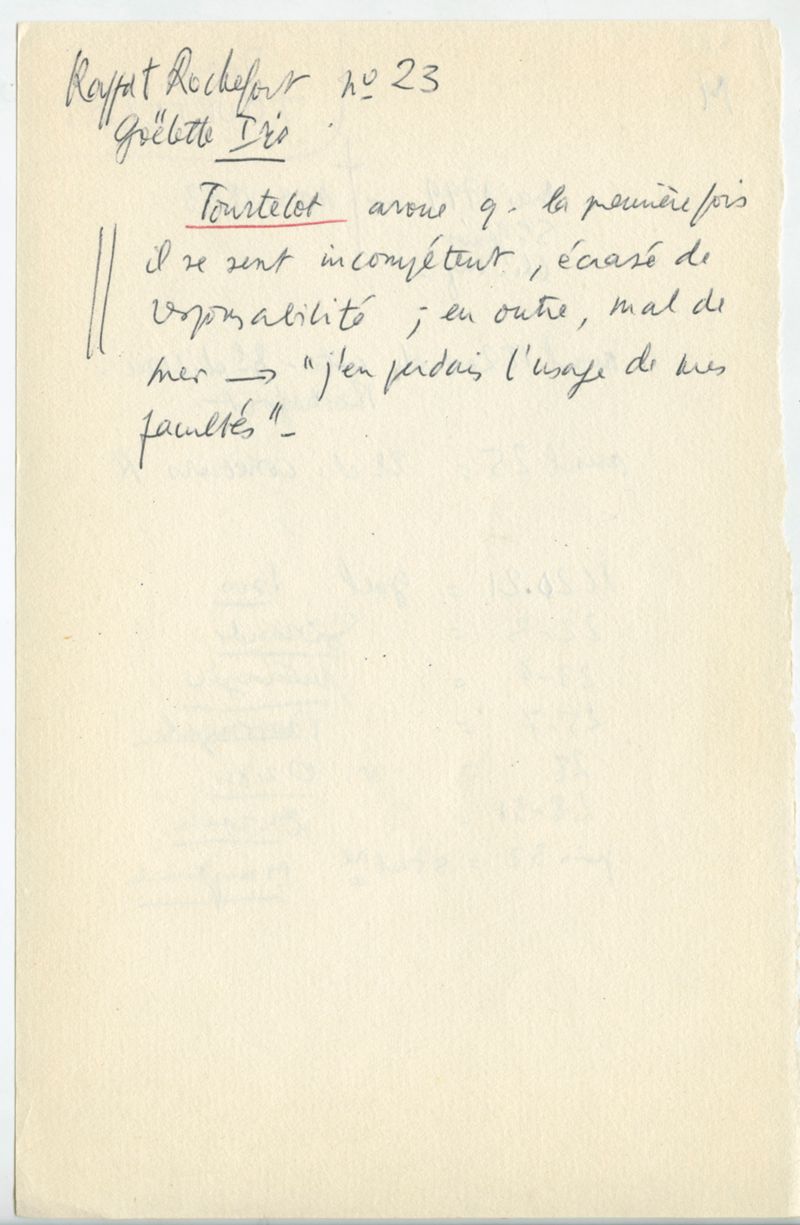 Rappt Rochefort no 23
Goëlette Iris
Tourtelot avoue q. la première fois
il se sent incompétent, écrasé de
responsabilité ; en outre, mal de
mer → "j'en perdais l'usage de mes
facultés" –